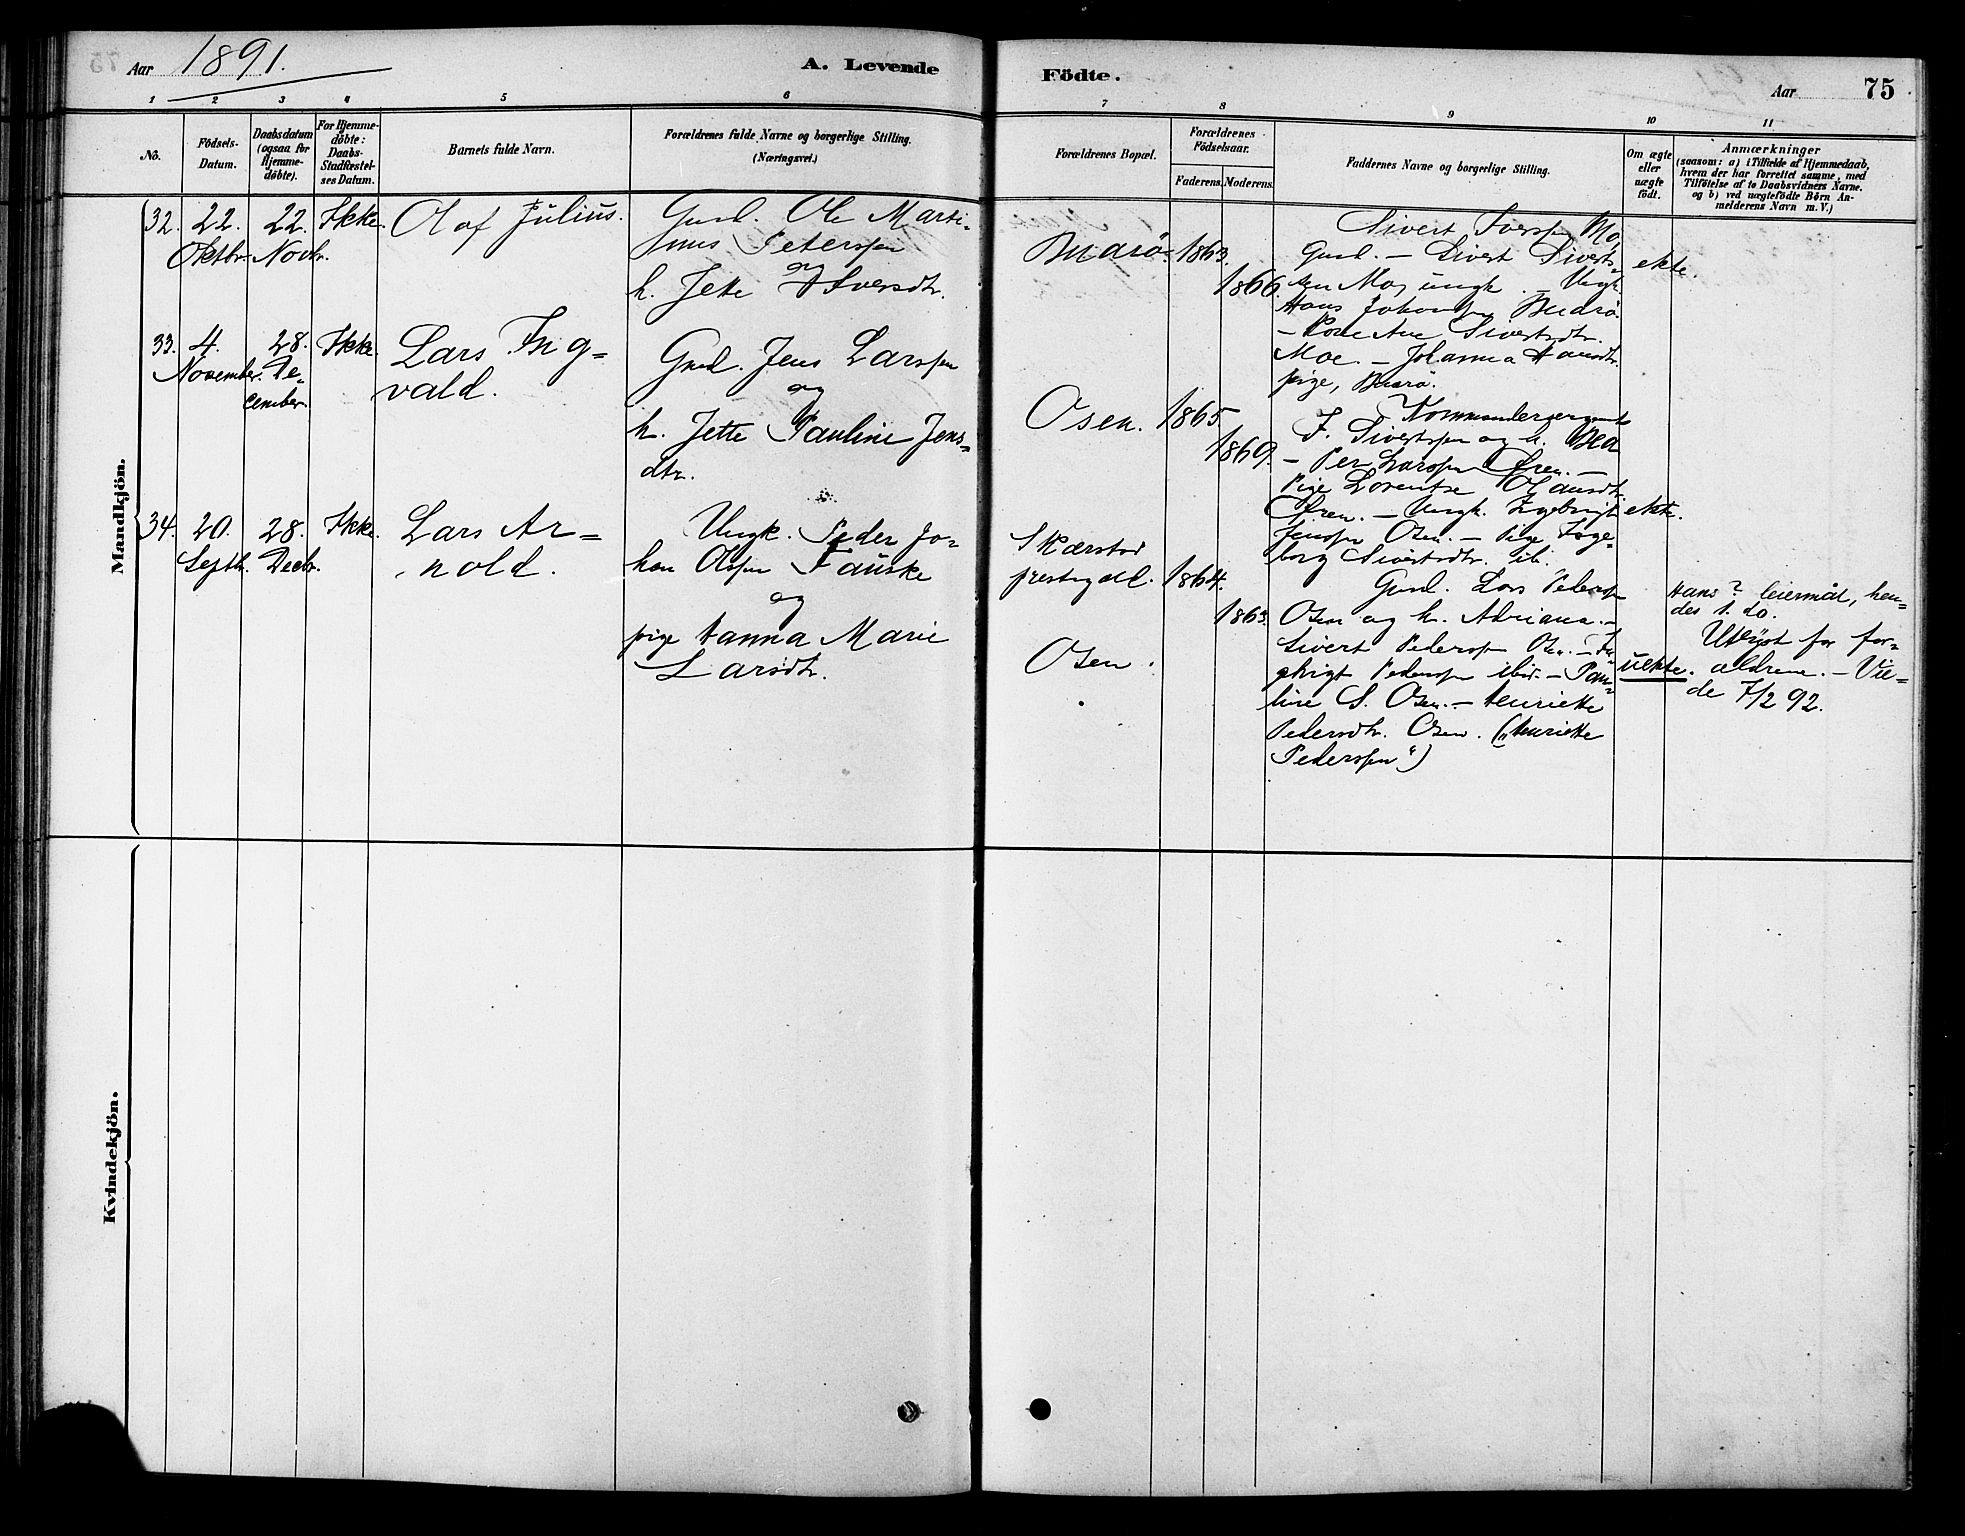 Aar 1891.
A. Levende
Födte.
Aar
75
1 2 3 4 5 6 7 8 9 10 11
No.
Födsels-
Datum.
Daabsdatum
(ogsaa for
Hjemme-
døbte).
For Hjemme-
døbte:
Daabs-
Stadfæstel-
ses Datum.
Barnets fulde Navn.
Forældrenes fulde Navne og borgerlige Stilling.
(Næringsvei.)
Forældrenes Bopæl.
Forældrenes
Födselsaar.
Faderens. Moderens.
Faddernes Navne og borgerlige Stilling.
Om ægte
eller
uægte
født.
Anmærkninger
(saasom: a) i Tilfælde af Hjemmedaab,
hvem der har forrettet samme, med
Tilføielse af to Daabsvidners Navne.
og b) ved uægtefødte Børn An-
melderens Navn m. V.)
Mandkjön.
32.
22.
Oktbr.
22.
Novbr.
Ikke.
Olaf Julius.
Gmd. Ole Marti-
nus Peterssen
og
h. Jette Iversdtr.
Buarø.
1863.
1866.
Sivert Iverssen Mo,
Gmd. – Sivert Siverts-
sen Mo, ungk. – Ungk.
Hans Johanssen Buarø.
– Kone Ane Sivertsdtr.
Moe. – Johanna Hansdtr.
pige, Buarø.
ekte.
33.
4.
November.
28.
De-
cember.
Ikke.
Lars Ing-
vald.
Gmd. Jens Larssen
og
h. Jette Pauline Jens-
dtr.
Osen.
1865.
1869.
Kommandersergeant
J. Sivertssen og h. Bea
– Per Larssen
Pige Lorentse
– Ungk. Ingebrigt
Jenssen Osen. – Pige Inge-
borg Sivertsdtr. ib.
ekte.
34.
20.
Septbr.
28.
Decbr.
Ikke.
Lars Ar-
nold.
Ungk. Peder Jo-
han Olssen Fauske
og
pige Hanna Marie
Larsdtr.
Skærstad
prestegjeld.
Osen.
1864.
1863.
Gmd. Lars Pederssen
Osen og h. Adriana. –
Sivert Pederssen Osen. – In-
gebrigt Pederssen ibid. – Pau-
line S. Osen. – Henriette
Pedersdtr. Osen. („Henriette
Pederssen“)
uekte.
Hans ? leiermål, hen-
des 1. do.
Utlyst for for-
ældrene. – Vie-
de 7/2 92.
Kvindekjön.